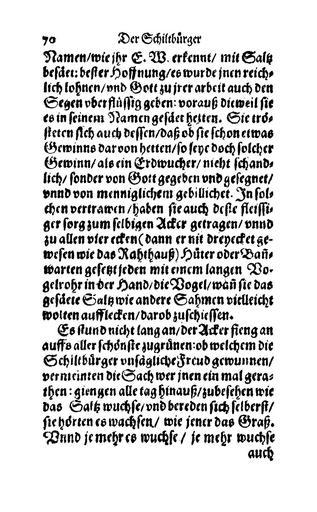 70 Der Schiltbürger
Namen/wie jhr E. W. erkennt/ mit Saltz
besäet: bester Hoffnung/es wurde jnen reich-
lich lohnen/vnd Gott zu jrer arbeit auch den
Segen vberflüssig geben: vorauß dieweil sie
es in seinem Namen gesäet hetten. Sie trö-
steten sich auch dessen/daß ob sie schon etwas
Gewinns dar von hetten/so seye doch solcher
Gewinn/als ein Erdwucher/ nicht schand-
lich/ sonder von Gott gegeben vnd gesegnet/
vnnd von menniglichem gebillichet. In sol-
chen vertrawen/haben sie auch deste fleissi-
ger sorg zum selbigen Acker getragen/vnnd
zu allen vier ecken (dann er nit dreyecket ge-
wesen wie das Rahthauß) Hüter oder Bañ-
warten gesetzt jeden mit einem langen Vo-
gelrohr in der Hand/die Vögel/wañ sie das
gesäete Saltz wie andere Sahmen vielleicht
wolten aufflecken/darob zuschiessen.
Es stund nicht lang an/der Acker fieng an
auffs aller schönste zugrünen:ob welchem die
Schiltbürger vnsägliche Freud gewunnen/
vermeinten die Sach wer jnen ein mal gera-
then: giengen alle tag hinauß/zubesehen wie
das Saltz wuchse/vnd bereden sich selberst/
sie hörten es wachsen/ wie jener das Graß.
Vnnd je mehr es wuchse/ je mehr wuchse
auch